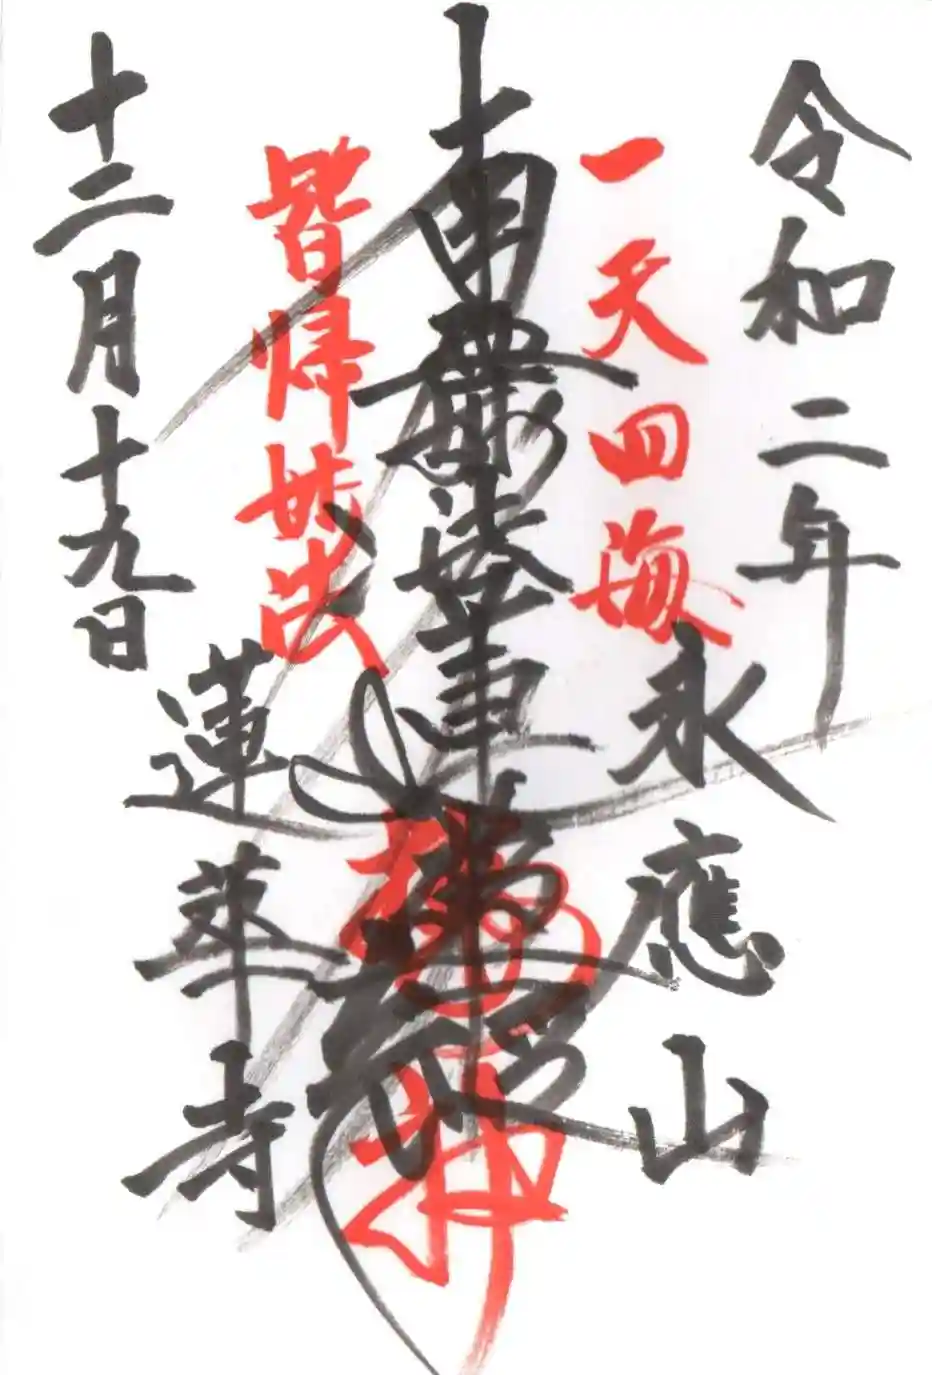 令和二年
永應山
一天四海
南無妙法蓮華経
皆帰妙法
十二月十九日
蓮華寺